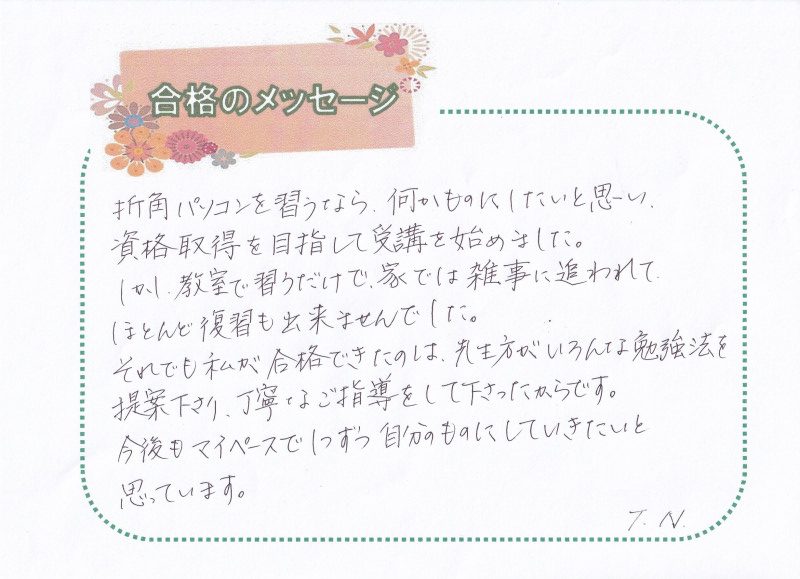 合格のメッセージ
折角パソコンを習うなら、何かものにしたいと思い、
資格取得を目指して受講を始めました。
しかし、教室で習うだけで、家では雑事に追われて
ほとんど復習も出来ませんでした。
それでも私が合格できたのは、先生方がいろんな勉強法を
提案下さり、丁寧なご指導をして下さったからです。
今後もマイペースで1つずつ自分のものにしていきたいと
思っています。
T. N.